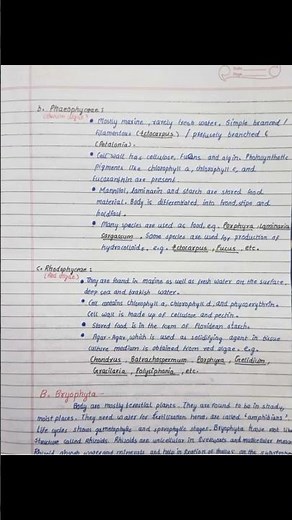 b. Phaeophyceae :
(Brown algae)
• Mostly marine, rarely fresh water. Simple branched /
filamentous (Ectocarpus) / profusely branched (
(Petalonia).
• Cell wall has cellulose, and algin. Photosynthetic
pigments like chlorophyll a, chlorophyll c, and
fucoxanthin are present.
• Mannitol, laminarin and starch are stored food
material. Body is differentiated into frond, stipe and
holdfast.
• Many species are used as food, e.g. Porphyra Laminaria
Sargassum. Some species are used for production of
hydrocolloids, e.g. Ectocarpus, Fucus, etc.
c. Rhodophyceae :
(Red algae)
• They are found in marine as well as fresh water on the surface,
deep sea and brakish water.
• Cell contains chlorophyll a, chlorophyll d, and phycoerythrin.
Cell wall is made up of cellulose and pectin.
• Stored food is in the form of Floridean starch.
• Agar-Agar, which is used as solidifying agent in tissue
culture medium is obtained from red algae. e.g.
Chondrus, Batrachospermum, Porphyra, Gelidium,
Gracilaria, Polysiphonia, etc.
B. Bryophyta -
Body are mostly terrestial plants. They are found to be in shady,
moist places. They need water for fertilization hence are called "amphibians".
Life cycles shows gametophytic and sporophytic stages. Bryophyta have root like
structure called rhizoids. Rhizoids are unicellular in liverworts and multicellular mosses